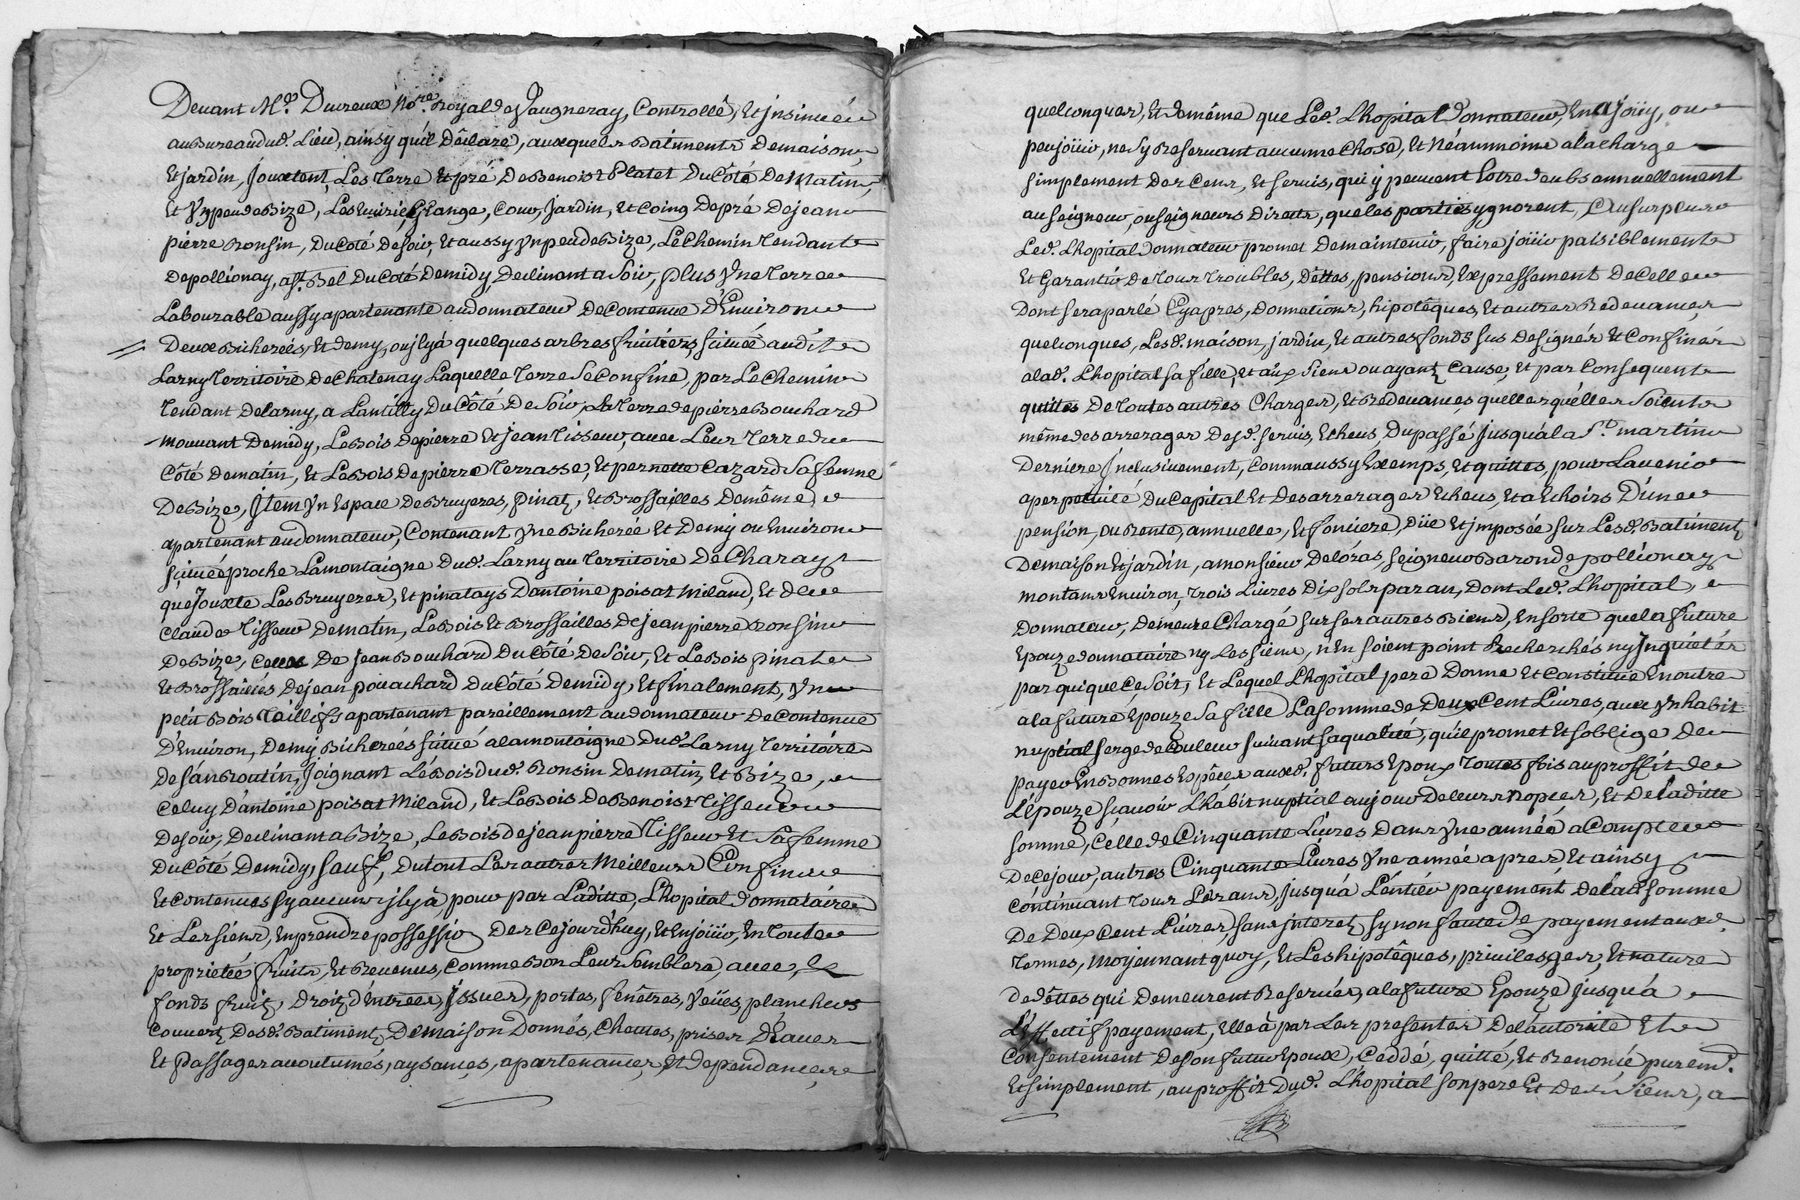 Devant Me. Ducreux Nore. Royal de Vaugneray, Controllé, Et jnsinué
au Bureau dud. Lieu, ainsy qu'il déclare, auxquels Batiments de maison,
Et jardin, Jouxtent, Les Terre Et pré De Benoist Platet Du Côté De Matin,
Et Yn peu de Bize, Les Ecurie, Grange, Cour, Jardin, Et Coing De pré De jean
pierre Ronsin, Du Coté de soir, Et aussy yn peu de Bize, Le Chemin Tendant
De pollionay, a St. Bel Du Coté De midy, Declinant a Soir, plus Yne Terre
Labourable aussy apartenante au donnateur De Contenue D'Environ
Deux Bicherées, Et demy, ou jl y à quelques arbres fruitiers scituée audit
Larny Territoire De Chatenay Laquelle Terre Se Confine, par Le Chemin
Tendant de Larny, a Lantilly Du Côté De Soir, La Terre de pierre Bouchard
mouvant De midy, Le Bois de pierre Et jean Tisseur, avec Leur Terre du
Côté de matin, Et Le Bois De pierre Terrasse, Et pernette Cazard Sa femme
De Bize, Jtem Yn Espace De Bruyeres, pinatz, Et Brossailles De même,
apartenant au donnateur, Contenant Yne Bicherée Et Demy ou Environ
scituée proche La montaigne Dud. Larny au Territoire De Charay
que Jouxte Les Bruyeres, Et pinatays D'antoine poisat Miland, Et de
Claude Tisseur De matin, Le Bois Et Brossailles de jean pierre Ronsin
De Bize, Celle De Jean Bouchard Du Côté De Soir, Et Le Bois pinat
Et Brossailles de jean Bouchard Du Côté De midy, Et finalement, Yn
petit Bois Taillifs apartenant pareillement au donnateur De Contenue
D'Environ, Demy Bicherées scitué a la montaigne Dud. Larny Territoire
De Joignant Le Bois dud. Ronsin De matin, Et Bize,
Celuy D'antoine poisat Miland, Et Le Bois De Benoist Tisseur
De soir, Declinant a Bize, Le Bois de jean pierre Tisseur Et Sa femme
Du Côté De midy, sauf, Du tout Les autres Meilleurs Confins
Et Contenues sy aucuns jl y à pour par Laditte, L'hopital Donnataire
Et Les siens, En prendre possession Des Cejourd'huy, Et En joüir, En Toute
proprieté fruits, Et Revenus, Comme Bon Leur Semblera, avec,
fonds fruitz, Droitz d'entrées, Jssues, portes, fenêtres, Veües, planchers
Couvertz Desd. Batimentz De maison Donnés, Chuttes, prises D'Eaux
Et Passages accoutumés, aysances, apartenances, Et dependances
quelconques, Et de même que Led. L'hopital Donnateur, En a Joüy, ou
peu joüir, ne s'y Reservant aucune Chose, Et Néanmoins a la charge
simplement Des Cens, Et servis, qui y peuvent Estre deubs annuellement
au seigneur, ou seigneurs Directs, que les parties ygnorent, Au surplus
Led. L'hopital Donnateur promet De maintenir, faire joüir paisiblement
Et Garantir De Tous Troubles, Dettes, pensions, Expressement De Celle
Dont sera parlé Cy apres, Donnations, hipotêques, Et autres Redevances
quelconques, Lesd. maison, jardin, Et autres fonds sus Designés Et Confinés
a lad. L'hopital sa fille, Et aux Siens ou ayantz Cause, Et par Consequent
quittes De Toutes autres Charges, Et Redevances quelles qu'elles Soient
même des arrerages Desd. servis, Echeus, Du passé Jusqu'à la St. martin
Derniere Jnclusivement, Comm'aussy Exemps, Et quittes, pour L'avenir
a perpetuité Du Capital Et Des arrerages Echeus, Et a Echoirs D'une
pension, ou Rente, annuelle, Et fonciere, Düe Et jmposée sur Lesd. Batimentz
De maison Et jardin, a monsieur De loras, seigneur Baron de pollionay
montant Environ, Trois Livres Dix sols par an, Dont Led. L'hopital,
Donnateur, Demeure Chargé sur ses autres Biens, En sorte que la future
Epouze donnataire ny Les siens, n'En soient point Recherchés ny Jnquietés
par qui que Ce soit, Et Lequel L'hopital pere Donne Et Constitue En outre
a la future Epouze Sa fille La somme de Deux Cent Livres, avec Yn habit
nuptial serge de Couleur suivant sa qualité, qu'il promet Et s'oblige De
payer En Bonnes Espêces auxd. futurs Epoux Toutes fois au proffit de
L'épouze sçavoir L'habit nuptial au jour De leurs nopces, Et De laditte
somme, Celle de Cinquante Livres Dans Yne année a Compter
De Ce jour, autres Cinquante Livres Yne année apres Et ainsy
Continuant Tous Les ans, Jusqu'à L'entier payement De lad. somme
De Deux Cent Livres, sans jnteretz sy non faute de payement auxd.
Termes, moyennant quoy, Et Les hipotêques, privileges, Et nature
De dettes qui Demeurent Reservés a la future Epouze Jusqu'à
L'effectif payement, Elle à par Les presentes De l'autorité Et
Consentement De son futur Epoux, Ceddé, quitté, Et Renoncé puremt.
Et simplement, au proffit Dud. L'hopital son pere Et des Siens, a